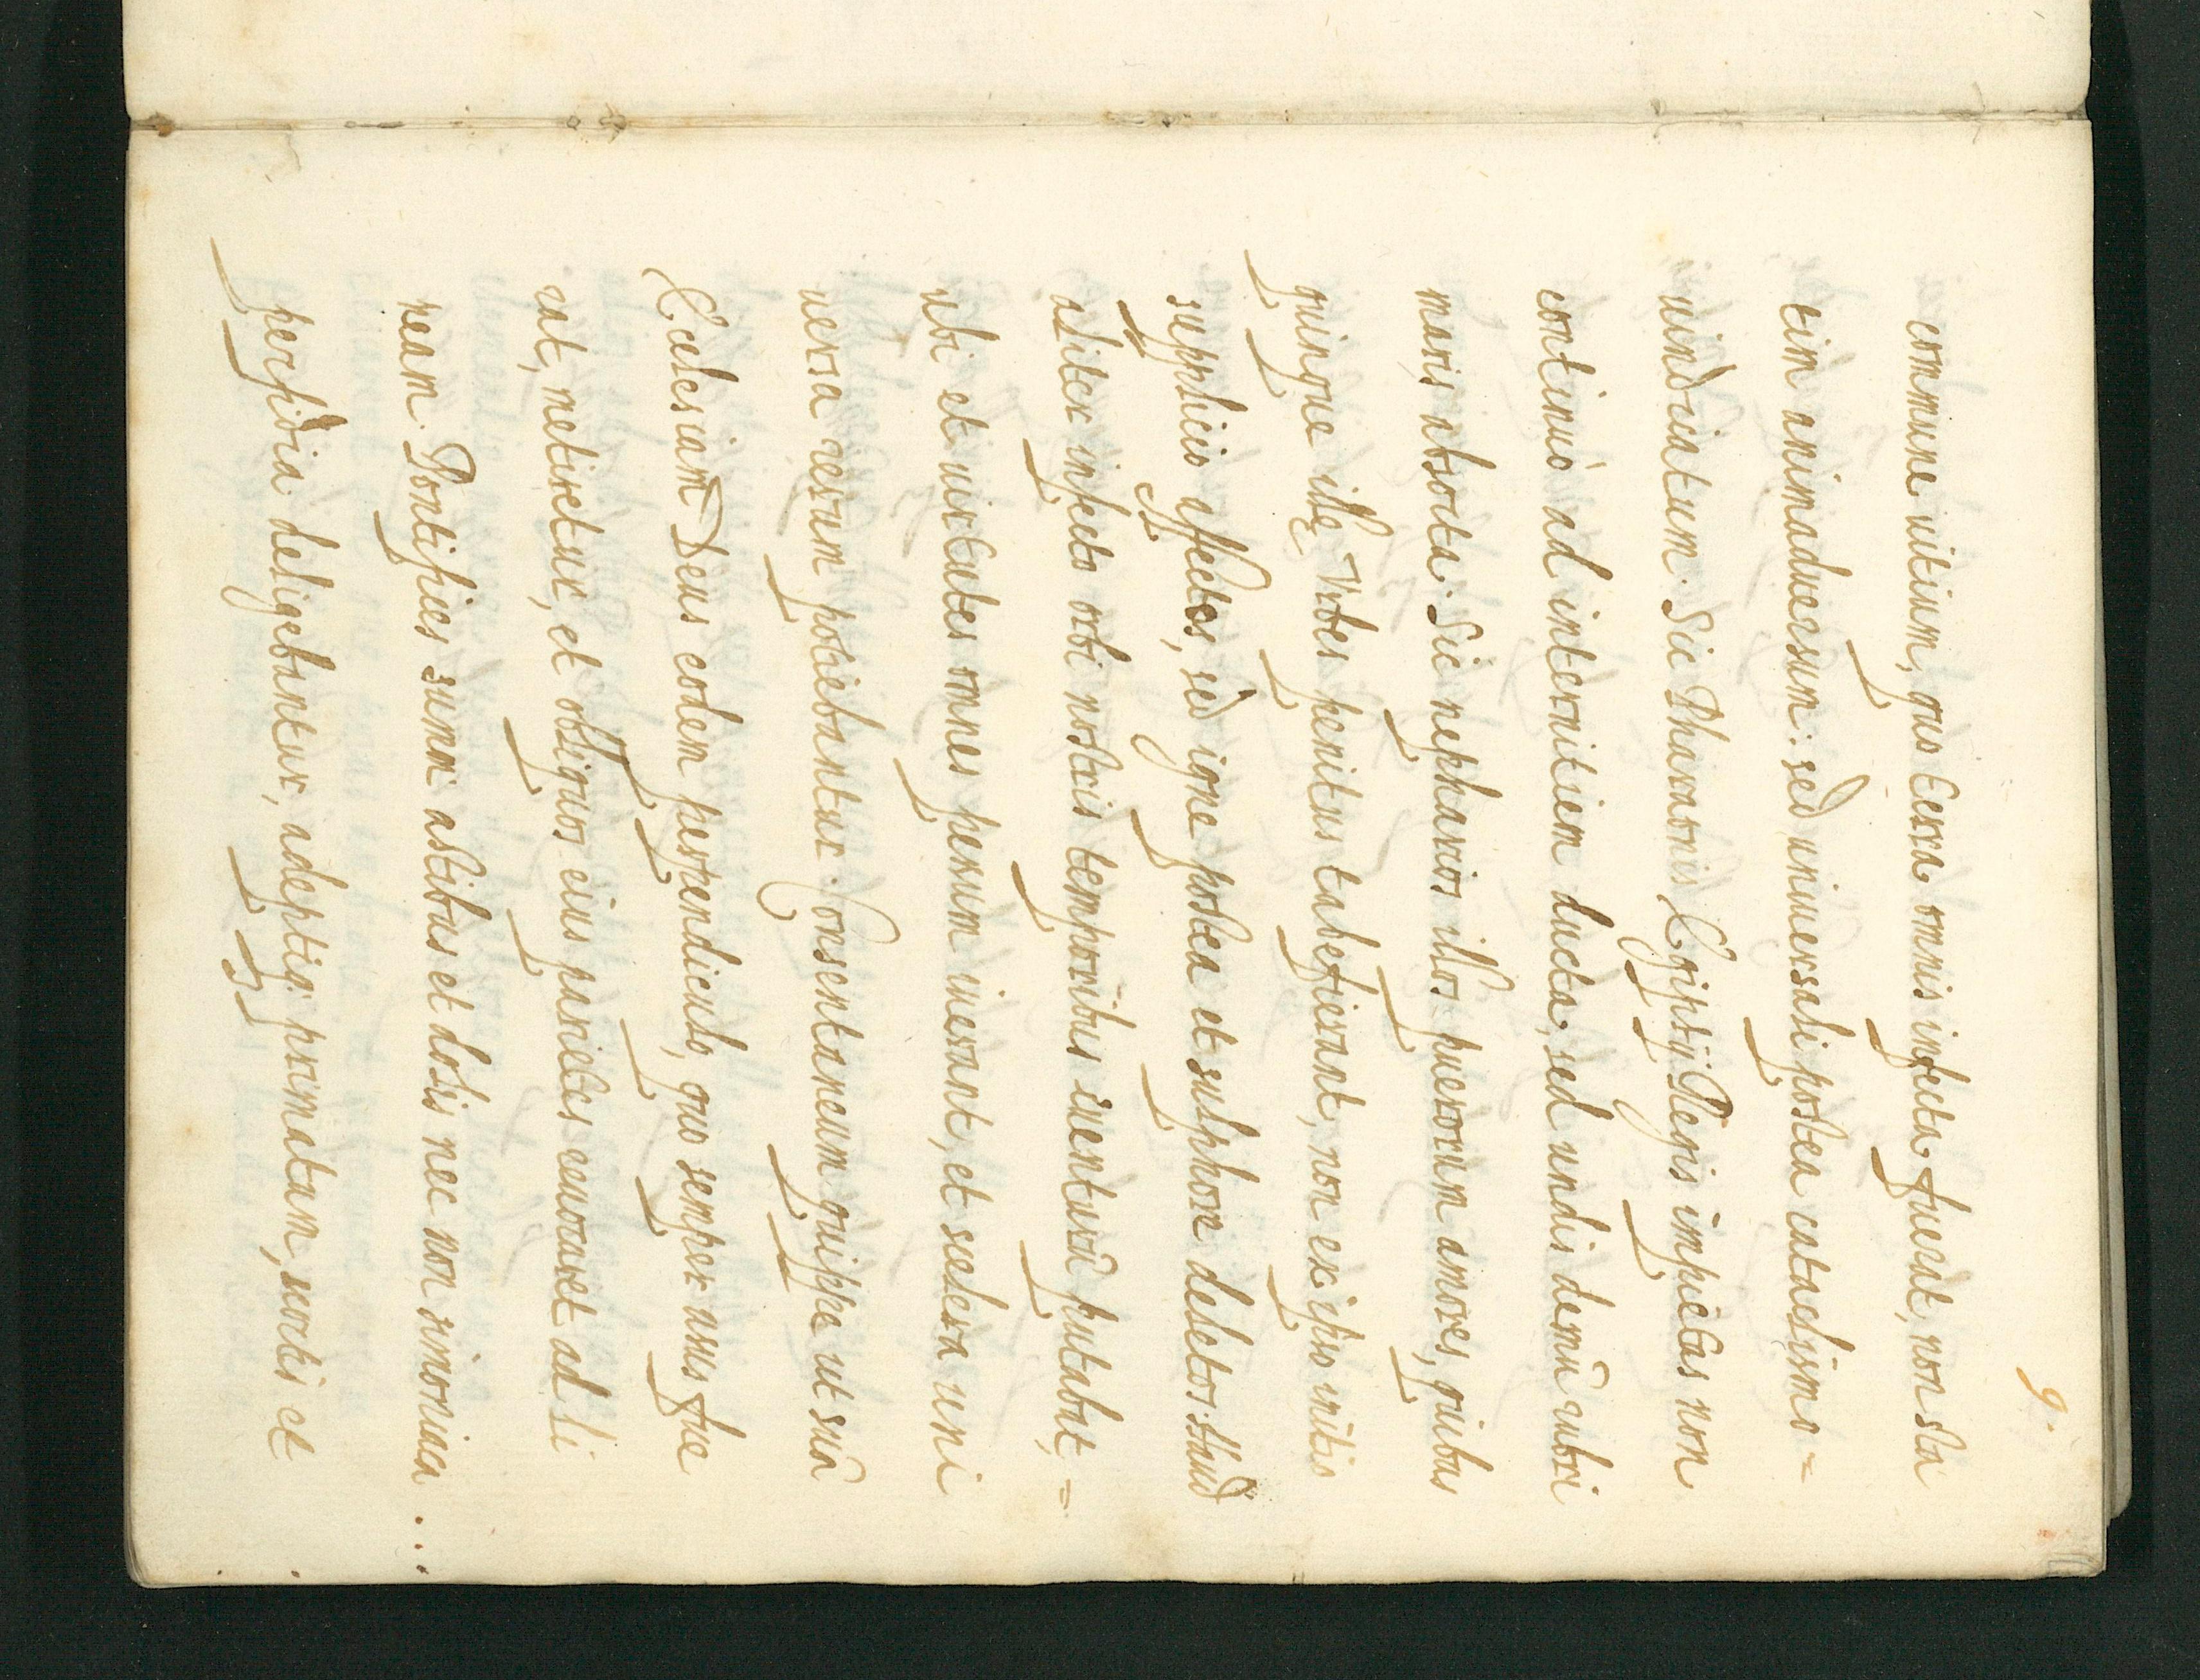 9.
commune uitium, quo terra omnis infecta fuerat, non sta
tim animaduersum: sed uniuersali postea cataclismo =
uindicatum. Sic Pharaonis Egiptij Regis impietas non
continuò ad internitiem ducta, sed undis demũ rubri
maris absorta. Sic nepharios illos puerorum amores, quibus
quinque illę Vrbes penitus tabefierant, non ex ipso initio
supplicio affectos, sed igne postea et sulphore deletos. Haud
aliter infecto orbi nostris temporibus euenturũ putabat, =
ubi et uirtutes omnes pesum iuerant, et scelera uni
uersa rerum potiebantur. Consentaneum quippe ut suã
Ecclesiam Deus eodem perpendiculo, quo semper usus fue
rat, metiretur, et obliquos eius parietes curaret ad li
neam. Pontifices summi astibus et dolis nec non simoniaca ...
perfidia deligebantur, adeptiq; primatum, scortis et .